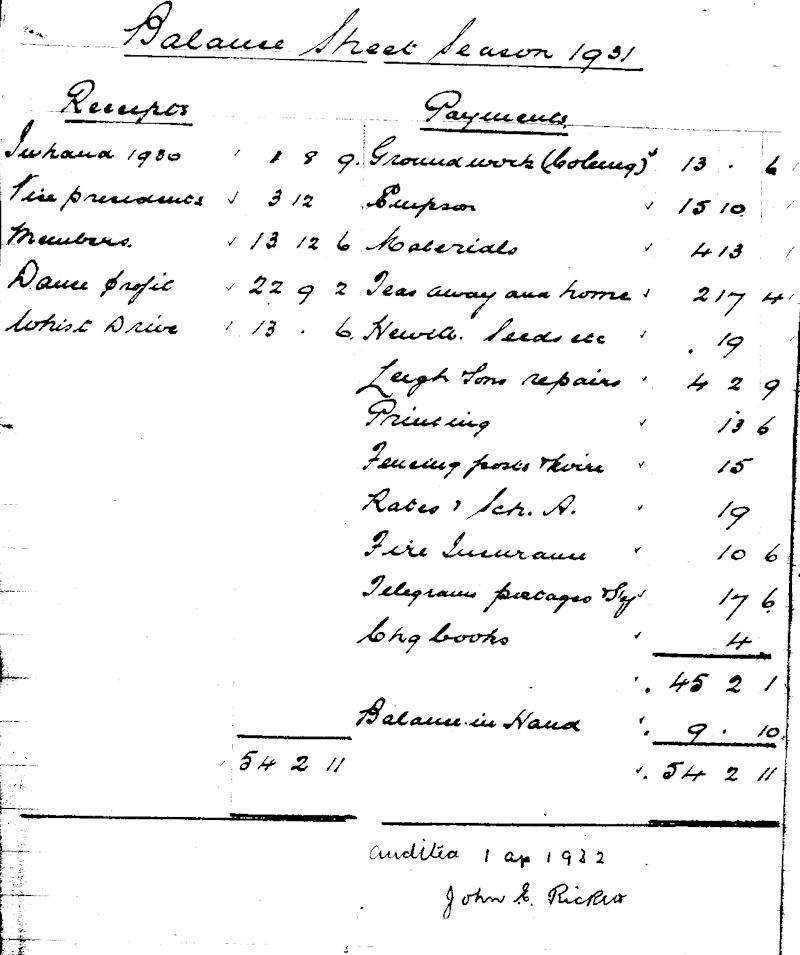 Balance Sheet Season 1931
Receipts
In hand 1930 " 1 8 9.
Vice presidents 3 12
Members. 13 12 6
Dance profit 22 9 2
Whist Drive 13 . 6
54 2 11
Payments
Groundwork 13 . 6
Empson 15 10
Materials 4 13
Teas away and home 2 17 4
Seeds etc . 19
Leigh Sons repairs 4 2 9
Printing 13 6
Fencing posts & wire 15
Rates & Sch. A. 19
Fire Insurance 10 6
Telegrams postages & 17 6
Chq books 4
45 2 1
Balance in Hand 9 . 10
54 2 11
Audited 1 ap 1932
John E.